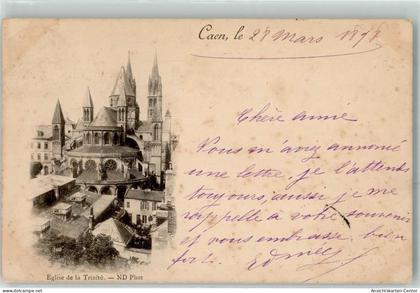 Caen, le 28 Mars 1898
Chère amie
Vous m'avez annoncé
une lettre, je l'attends
toujours, aussi je me
rappelle à votre souvenir
et vous embrasse bien
fort.
Eglise de la Trinité. — ND Phot
www.ansichtskarten-center.de Ansichtskarten-Center